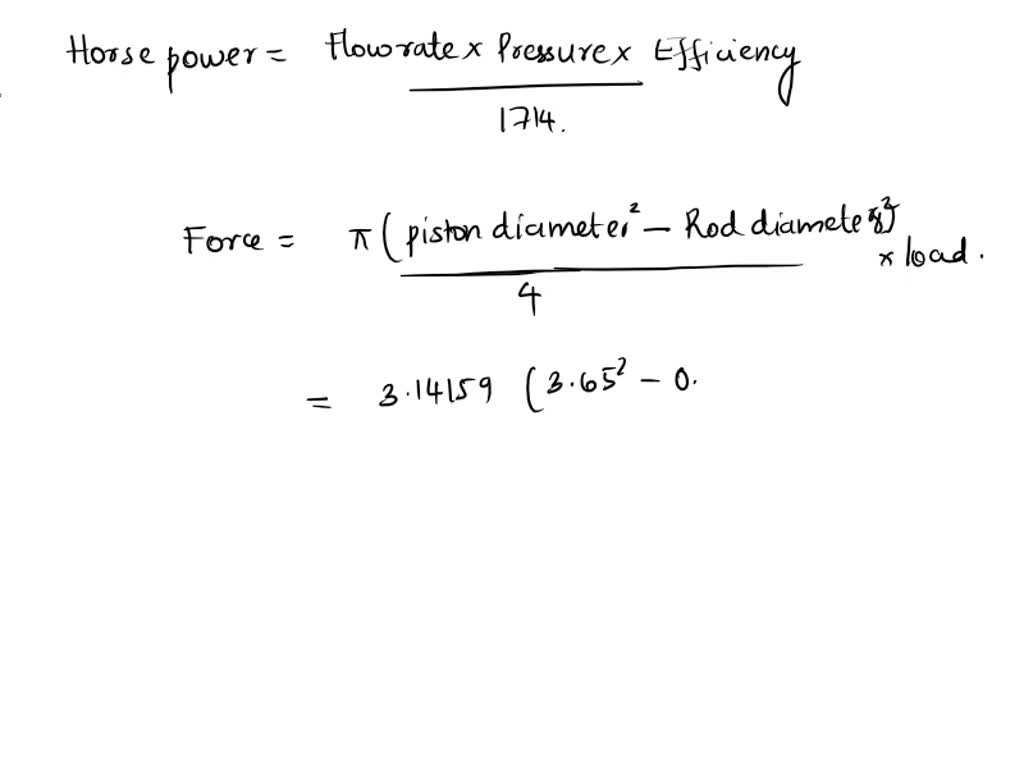 Horse power = Flow rate x Pressure x Efficiency
1714.
Force = π ( piston diameter² − Rod diameter
4
x load.
= 3.14159 (3.65² − 0.